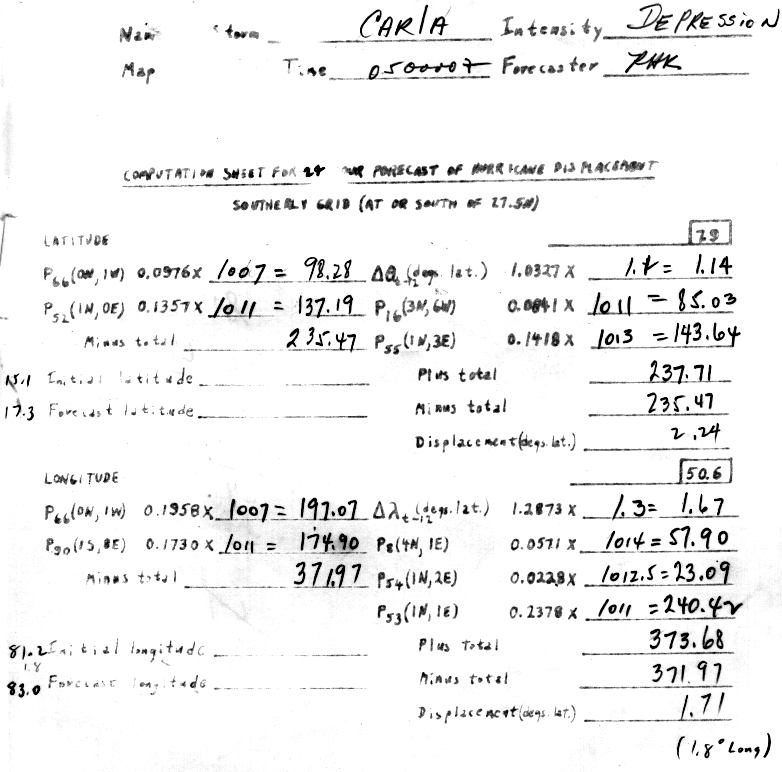 Name Storm CARLA Intensity DEPRESSION
Map Time 050000Z Forecaster RHK
COMPUTATION SHEET FOR 24 OUR FORECAST OF HURRICANE DISPLACEMENT
SOUTHERLY GRID (AT OR SOUTH OF 27.5N)
LATITUDE 7.9
P66(0N, 1W) 0.0976 X 1007 = 98.28 Δθt-12 (degs. lat.) 1.0327 X 1.1 = 1.14
P52(1N, 0E) 0.1357 X 1011 = 137.19 P16(3N, 6W) 0.0841 X 1011 = 85.03
Minus total 235.47 P55(1N, 3E) 0.1418 X 1013 = 143.64
15.1 Initial latitude Plus total 237.71
17.3 Forecast latitude Minus total 235.47
Displacement (degs. lat.) 2.24
LONGITUDE 50.6
P66(0N, 1W) 0.1958 X 1007 = 197.07 Δλt-12 (degs. lat.) 1.2873 X 1.3 = 1.67
P90(1S, 8E) 0.1730 X 1011 = 174.90 P8(4N, 1E) 0.0571 X 1014 = 57.90
Minus total 371.97 P54(1N, 2E) 0.0228 X 1012.5 = 23.09
P53(1N, 1E) 0.2378 X 1011 = 240.42
81.2 Initial longitude Plus total 373.68
1.8
83.0 Forecast longitude Minus total 371.97
Displacement (degs. lat.) 1.71
(1.8° Long)